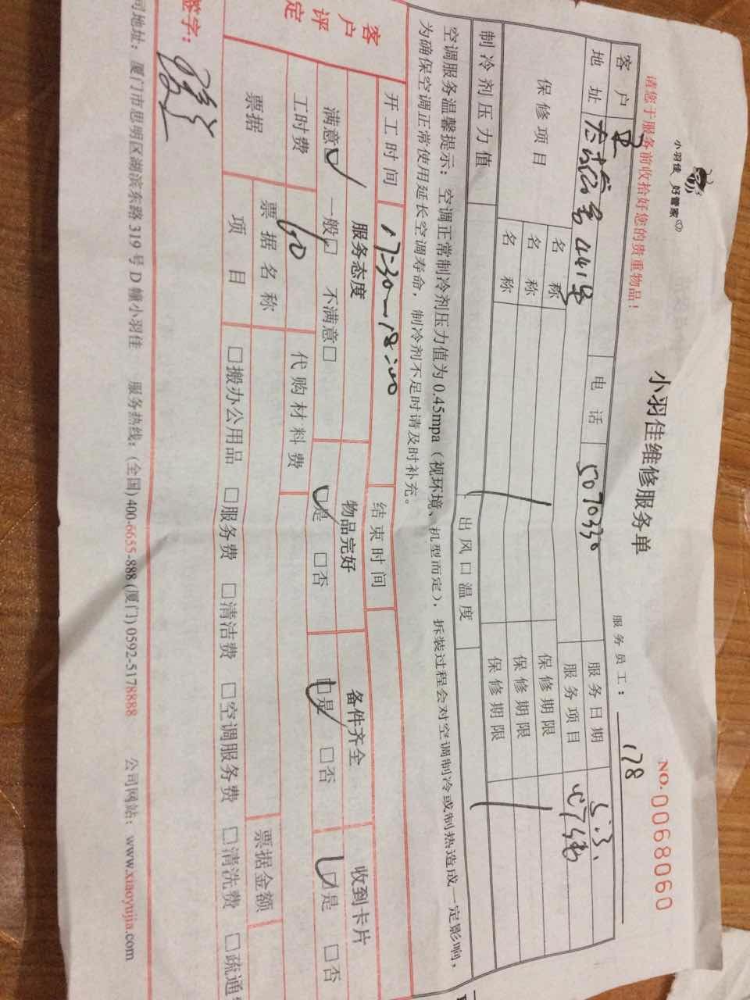 小羽佳 好管家
小羽佳维修服务单
NO.0068060
请您于服务前收拾好您的贵重物品!
服务员工: 178
客户 电话 5070330 服务日期 5.3.
地址 441号 服务项目
保修项目 名称 保修期限
名称 保修期限
名称 保修期限
制冷剂压力值 出风口温度
空调服务温馨提示:空调正常制冷剂压力值为0.45mpa(视环境、机型而定),拆装过程会对空调制冷或制热造成一定影响,
为确保空调正常使用延长空调寿命,制冷剂不足时请及时补充。
开工时间 17:30—18:00 结束时间
客户评定 服务态度 物品完好 备件齐全 收到卡片
满意☑ 一般□ 不满意□ ☑是 □否 ☑是 □否 ☑是 □否
工时费 60 代购材料费
票据 票据名称 票据金额
项目 □搬办公用品 □服务费 □清洁费 □空调服务费 □清洗费 □疏通
签字:
司地址:厦门市思明区湖滨东路319号D幢小羽佳 服务热线:(全国)400-6655-888(厦门)0592-5178888 公司网站:www.xiaoyujia.com